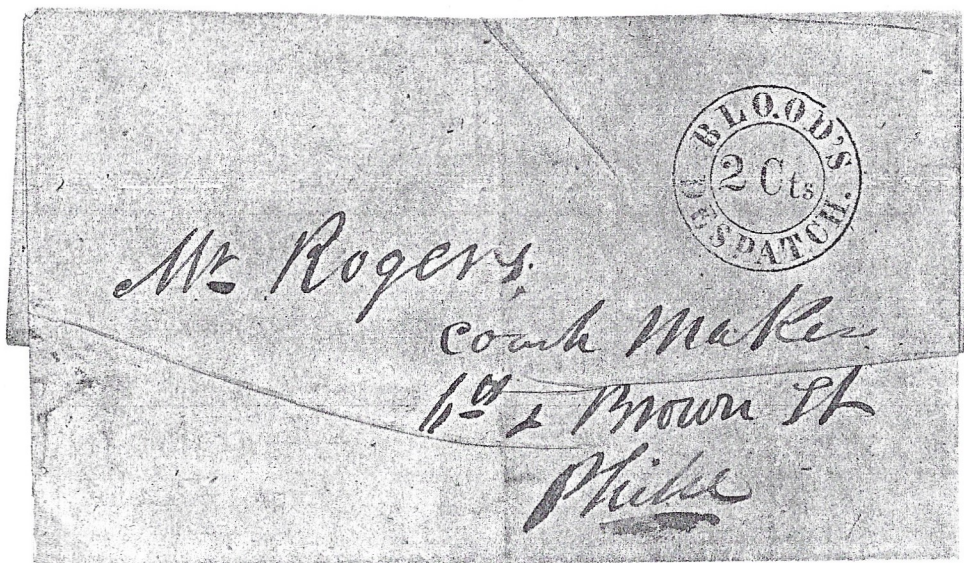 BLOOD'S
2 Cts
DESPATCH.
Mr Rogers.
coach Maker
6th & Brown St
Phila